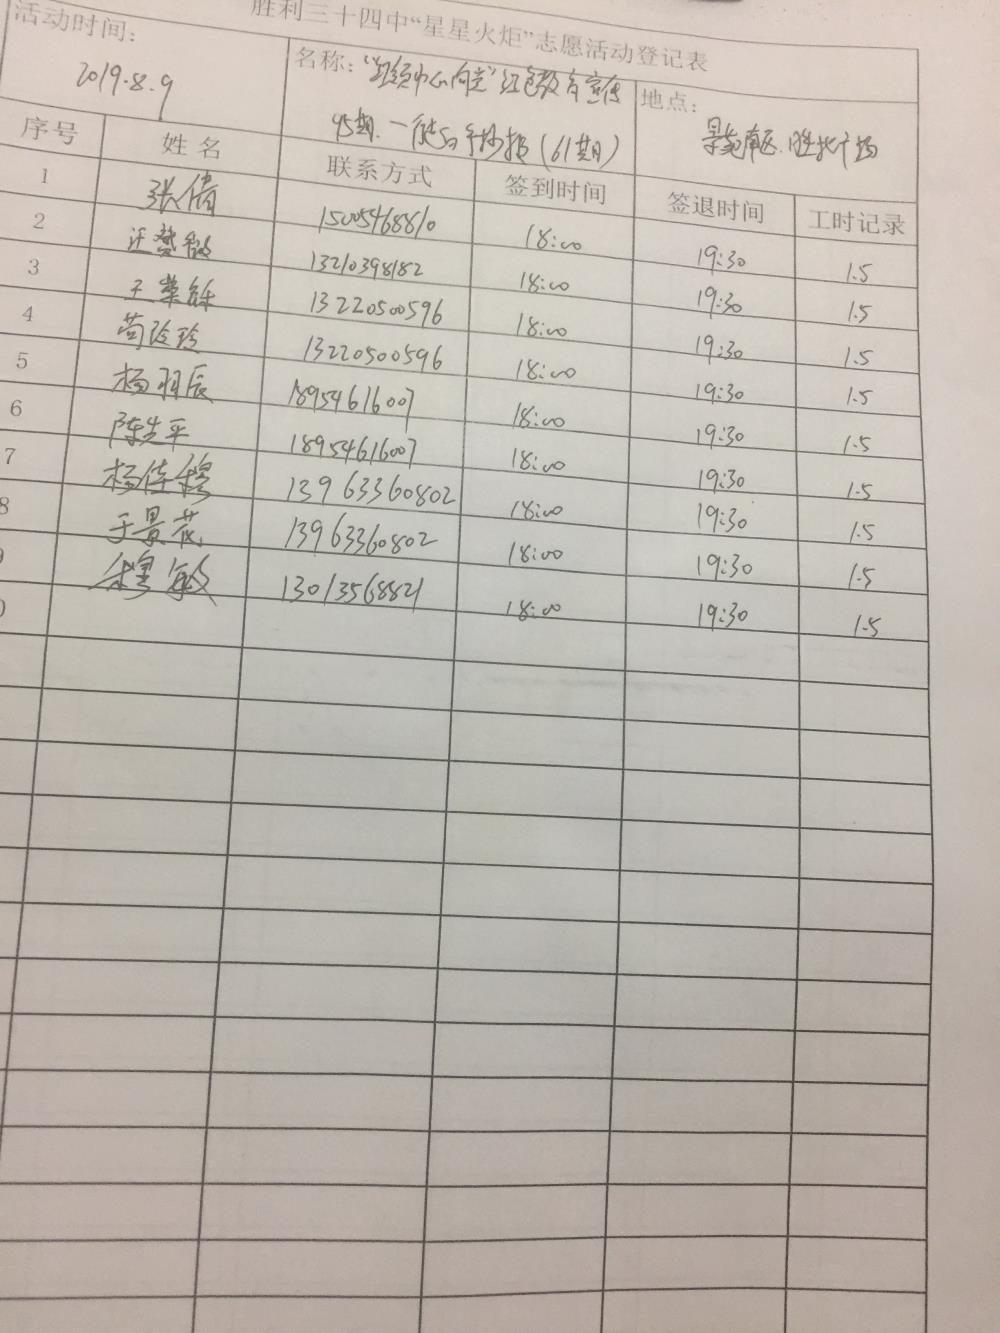 胜利三十四中“星星火炬”志愿活动登记表
活动时间: 2019.8.9
名称: 红色教育宣传
45期. 手抄报(61期)
地点: 景苑南区.胜北广场
序号 姓名 联系方式 签到时间 签退时间 工时记录
1 张倩 15005468810 18:00 19:30 1.5
2 13210398182 18:00 19:30 1.5
3 13220500596 18:00 19:30 1.5
4 苟玲珍 13220500596 18:00 19:30 1.5
5 杨羽辰 18954616007 18:00 19:30 1.5
6 陈先平 18954616007 18:00 19:30 1.5
7 杨佳穆 13963360802 18:00 19:30 1.5
8 于景花 13963360802 18:00 19:30 1.5
穆敏 13013568821 18:00 19:30 1.5